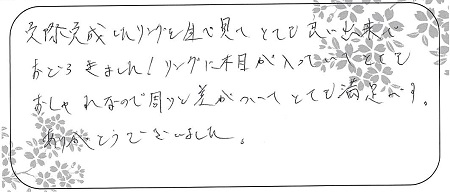 実際完成したリングを目で見て とても良い出来で
おどろきました！リングに木目が入っていてとても
おしゃれなので周りと差がついてとても満足です。
ありがとうございました。